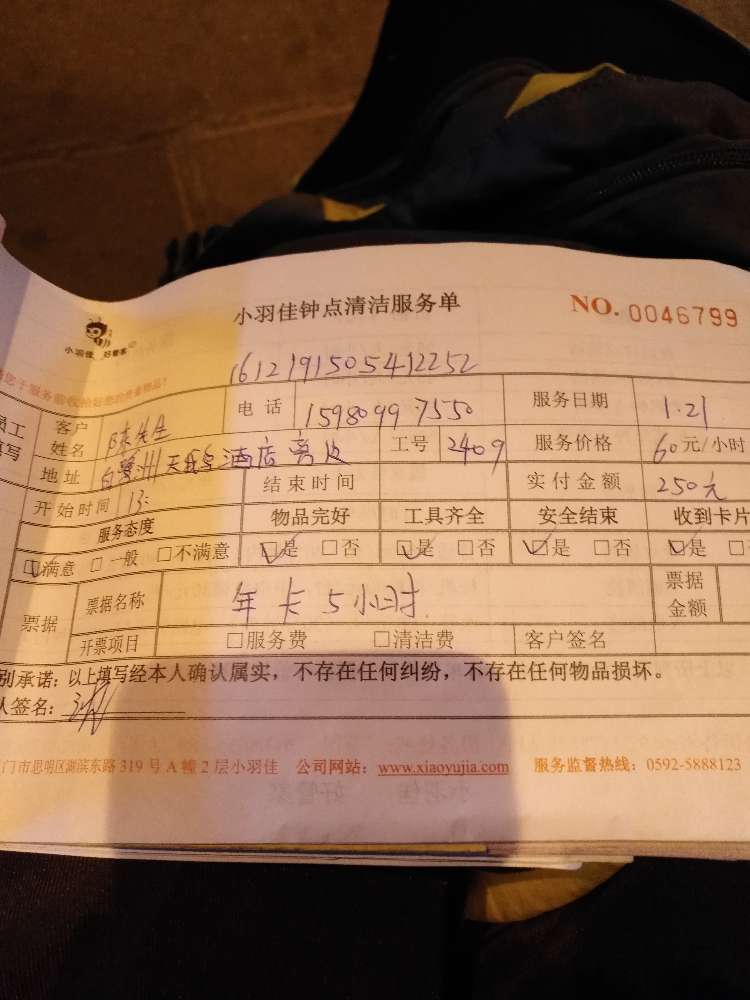 小羽佳钟点清洁服务单 NO. 0046799
小羽佳 好管家
1612191505412252
员工填写 客户姓名 陈先生 电话 15980997550 服务日期 1.21
地址 白鹭洲 天鹅 酒店 工号 2409 服务价格 60元/小时
开始时间 13: 结束时间 实付金额 250元
服务态度 物品完好 工具齐全 安全结束 收到卡片
☑满意 □一般 □不满意 ☑是 □否 ☑是 □否 ☑是 □否 ☑是 □否
票据 票据名称 年卡5小时 票据金额
开票项目 □服务费 □清洁费 客户签名
别承诺：以上填写经本人确认属实，不存在任何纠纷，不存在任何物品损坏。
人签名：
门市思明区湖滨东路319号A幢2层小羽佳 公司网站：www.xiaoyujia.com 服务监督热线：0592-5888123